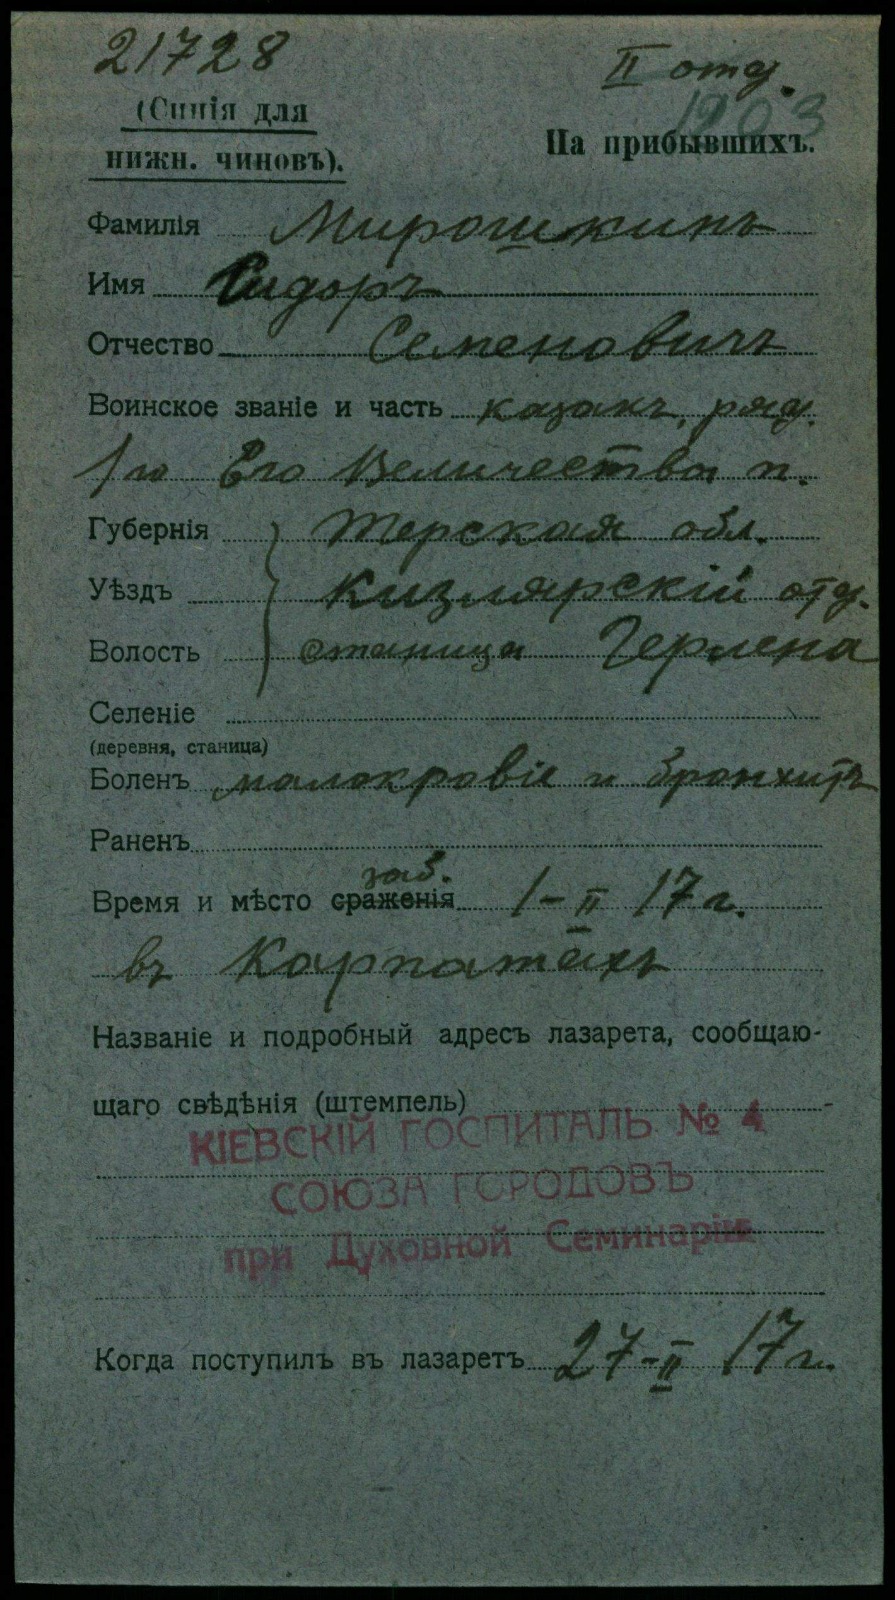 21728
II отд.
1903
(Синія для
нижн. чиновъ).
На прибывшихъ.
Фамилія Мирошкинъ
Имя Сидоръ
Отчество Семеновичъ
Воинское званіе и часть казакъ, ряд.
1го Его Величества п.
Губернія Терская обл.
Уѣздъ Кизлярскій отд.
Волость станица
Селеніе
(деревня, станица)
Боленъ малокровіе и бронхитъ
Раненъ
заб.
Время и мѣсто сраженія 1-II 17 г.
въ Карпатахъ
Названіе и подробный адресъ лазарета, сообщаю-
щаго свѣдѣнія (штемпель)
КІЕВСКІЙ ГОСПИТАЛЬ № 4
СОЮЗА ГОРОДОВЪ
при Духовной Семинаріи
Когда поступилъ въ лазаретъ 27-II 17 г.